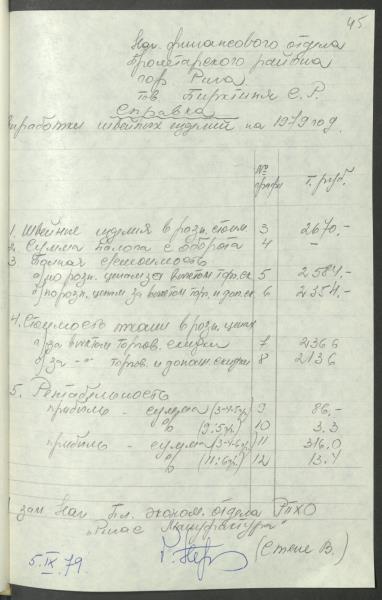 45
Нач. финансового отдела
Пролетарского района
гор Рига
тов. С. Р.
Справка
выработки швейных изделий на 1979 год.
№ графы
Т. руб.
1. Швейные изделия в розн. стоим. 3 2670,-
2. Сумма налога с оборота 4 -
3 Полная стоимость
а) по розн. ценам за вычетом торг. ск. 5 2584,-
б) по розн. ценам за вычетом торг. и доп. ск. 6 2354,-
4. Стоимость ткани в розн. ценах
а) за вычетом торгов. скидки 7 2366
б) за -"- торгов. и дополн. скидки 8 2136
5. Рентабельность
прибыль - сумма (3-4-5гр.) 9 86,-
% (9:5гр.) 10 3.3
прибыль - сумма (3-4-6гр.) 11 316.0
% (11:6гр.) 12 13.4
зам Нач Пл. эконом. отдела РПХО
"Ригас Мануфактура"
(Стене В.)
5.IX.79.